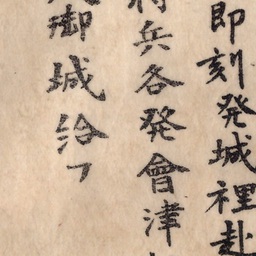 即刻発城裡赴
兵各発會津
御城給了